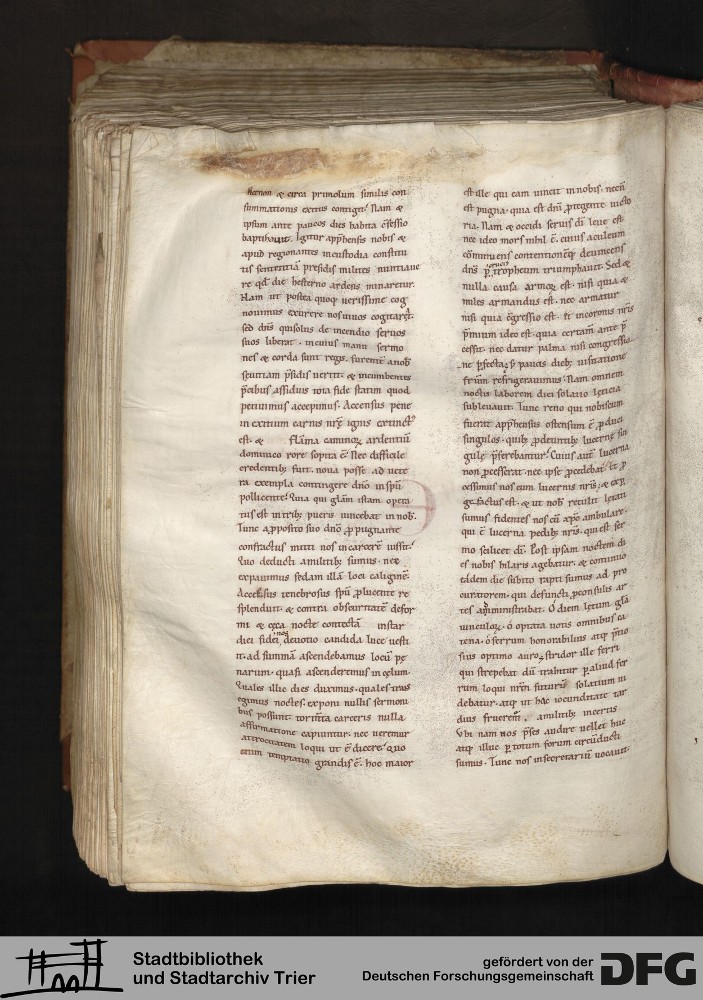 necnon & circa primolum similis con
summationis exitus contigit. Nam &
ipsum ante paucos dies habita c̄fessio
baptizauit. Igitur app̄hensis nobis &
apud regionantes in custodia constitu
tis sententiā presidis milites nuntiaue
re qd̄ die hesterno ardens minaretur.
Nam ut postea quoq; uerissime cog
nouimus exurere nos uiuos cogitarat.
sed dn̄s qui solus de incendio seruos
suos liberat. in cuius manu sermo
nes & corda sunt regis. furentē a nob
seuitiam p̄sidis uertit. & incumbentes
p̄cibus assiduis tota fide statim quod
petiuimus accepimus. Accensus pene
in exitium carnis nr̄ę ignis extinct᷒
est. & flāma caminoꝝ ardentiū
dominico rore sopita ē. Nec difficile
credentib; fuit. noua posse ad uete
ra exempla contingere dn̄o in sp̄u
pollicente. Quia qui glām istam opera
tus est in trib; pueris uincebat in nob̄.
Tunc apposito suo dn̄o ꝓpugnante
confractus mitti nos in carcerē iussit.
Quo deducti a militib; sumus. nec
expauimus fedam illā loci caliginē.
Accessus tenebrosus sp̄u ꝑlucente re
splenduit. & contra obscuritatē defor
mē & cęca nocte contectā instar
diei fidei nos deuotio candida luce uesti
it. ad summā ascendebamus locū pę
narum. quasi ascenderemus in cęlum.
Quales illic dies duximus. quales trans
egimus noctes. exponi nullis sermoni
bus possunt. tormta carceris nulla
affirmatione capiuntur. nec ueremur
atrocitatem loqui ut ē dicere. Quo
enim temptatio grandis ē. hoc maior
est ille qui eam uincit in nobis. nec ē
est pugna. quia est dn̄i ꝓtegente uicto
ria. Nam & occidi seruis dī leue est
nec ideo mors nihil ē. cuius aculeum
cōminuens contentionēq; deuincens
dn̄s ꝑ crucis tropheum triumphauit. Sed &
nulla causa armoꝝ est. nisi quia &
miles armandus est. nec armatur
nisi quia cōgressio est. Et in coronis nr̄is
p̄mium ideo est. quia certam̄ ante p̄
cessit. nec datur palma nisi congressio
ne ꝑfecta. ꝑ paucis dieb; uisitatione
fr̄um refrigerauimus. Nam omnem
noctis laborem diei solatio lęticia
subleuauit. Tunc reno qui nobiscum
fuerat app̄hensus ostensum ē ꝓduci
singulos. quib; ꝓdeuntib; lucernę sin
gulę p̄ferebantur. Cuius autē lucerna
non p̄cesserat. nec ipse ꝓcedebat. Et ꝓ
cessimus nos cum lucernis nr̄is. & exp
gefactus est. & ut nob̄ retulit lętati
sumus fidentes nos cū xp̄o ambulare.
qui ē lucerna pedib; nr̄is. qui est ser
mo scilicet dī. Post ipsam noctem di
es nobis hilaris agebatur. & continuo
eādem die subito rapti sumus ad pro
curatorem. qui defuncti ꝓconsulis ar
tes amministrabat. O diem lętum. glā
uinculoꝝ. ó optata uotis omnibus ca
tena. ó ferrum honorabilius atq; p̄tio
sius optimo auro. stridor ille ferri
qui strepebat dū trahitur ꝑ aliud fer
rum loqui nr̄m futurū solatium ui
debatur. atq; ut hac iocunditate tar
dius frueremr̄. a militib; incertis
Vbi nam nos p̄ses audire uellet huc
atq; illuc ꝑ totum forum circūducti
sumus. Tunc nos in secretariū uocauit.
Stadtbibliothek
und Stadtarchiv Trier
gefördert von der
Deutschen Forschungsgemeinschaft
DFG